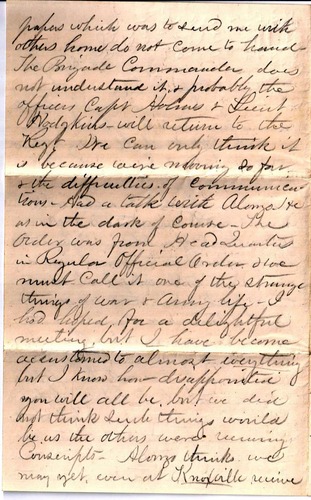 papers which was to send me with
others home do not come to hand
The Brigade Commander does
not understand it, & probably the
officers Capt Holmes & Lieut
Hodgkins - will return to the
Regt We can only think it
is because we're moving so far
& the difficulties of communica
tions - Had a talk with Alonzo He
as in the dark of course - The
Order was from Headquarters
in Regular Official Order, & we
must call it one of the strange
things of war & Army life - I
had hoped for a delightful
meeting, but I have become
accustomed to almost everything
but I know how disappointed
you will all be, but we did
not think such things would
be as the others were running
Conscripts - Alonzo thinks we
may yet, even at Knoxville receive